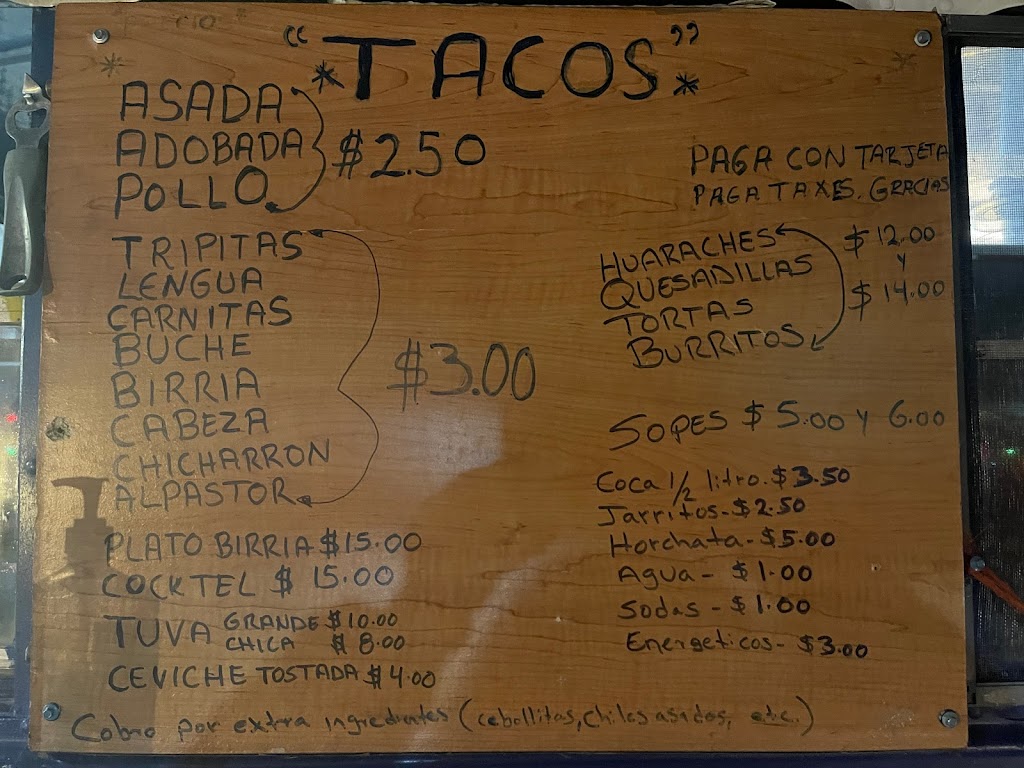 "TACOS"
ASADA
ADOBADA
POLLO
$2.50
TRIPITAS
LENGUA
CARNITAS
BUCHE
BIRRIA
CABEZA
CHICHARRON
ALPASTOR
$3.00
PLATO BIRRIA $15.00
COCKTEL $ 15.00
TUVA GRANDE $10.00
CHICA $ 8.00
CEVICHE TOSTADA $4.00
PAGA CON TARJETA
PAGA TAXES. GRACIAS
HUARACHES
QUESADILLAS
TORTAS
BURRITOS
$ 12.00
Y
$ 14.00
SOPES $ 5.00 Y 6.00
Coca 1/2 litro. $3.50
Jarritos- $2.50
Horchata- $5.00
Agua - $1.00
Sodas - $1.00
Energeticos- $3.00
Cobro por extra ingredientes (cebollitas, chiles asados, etc.)